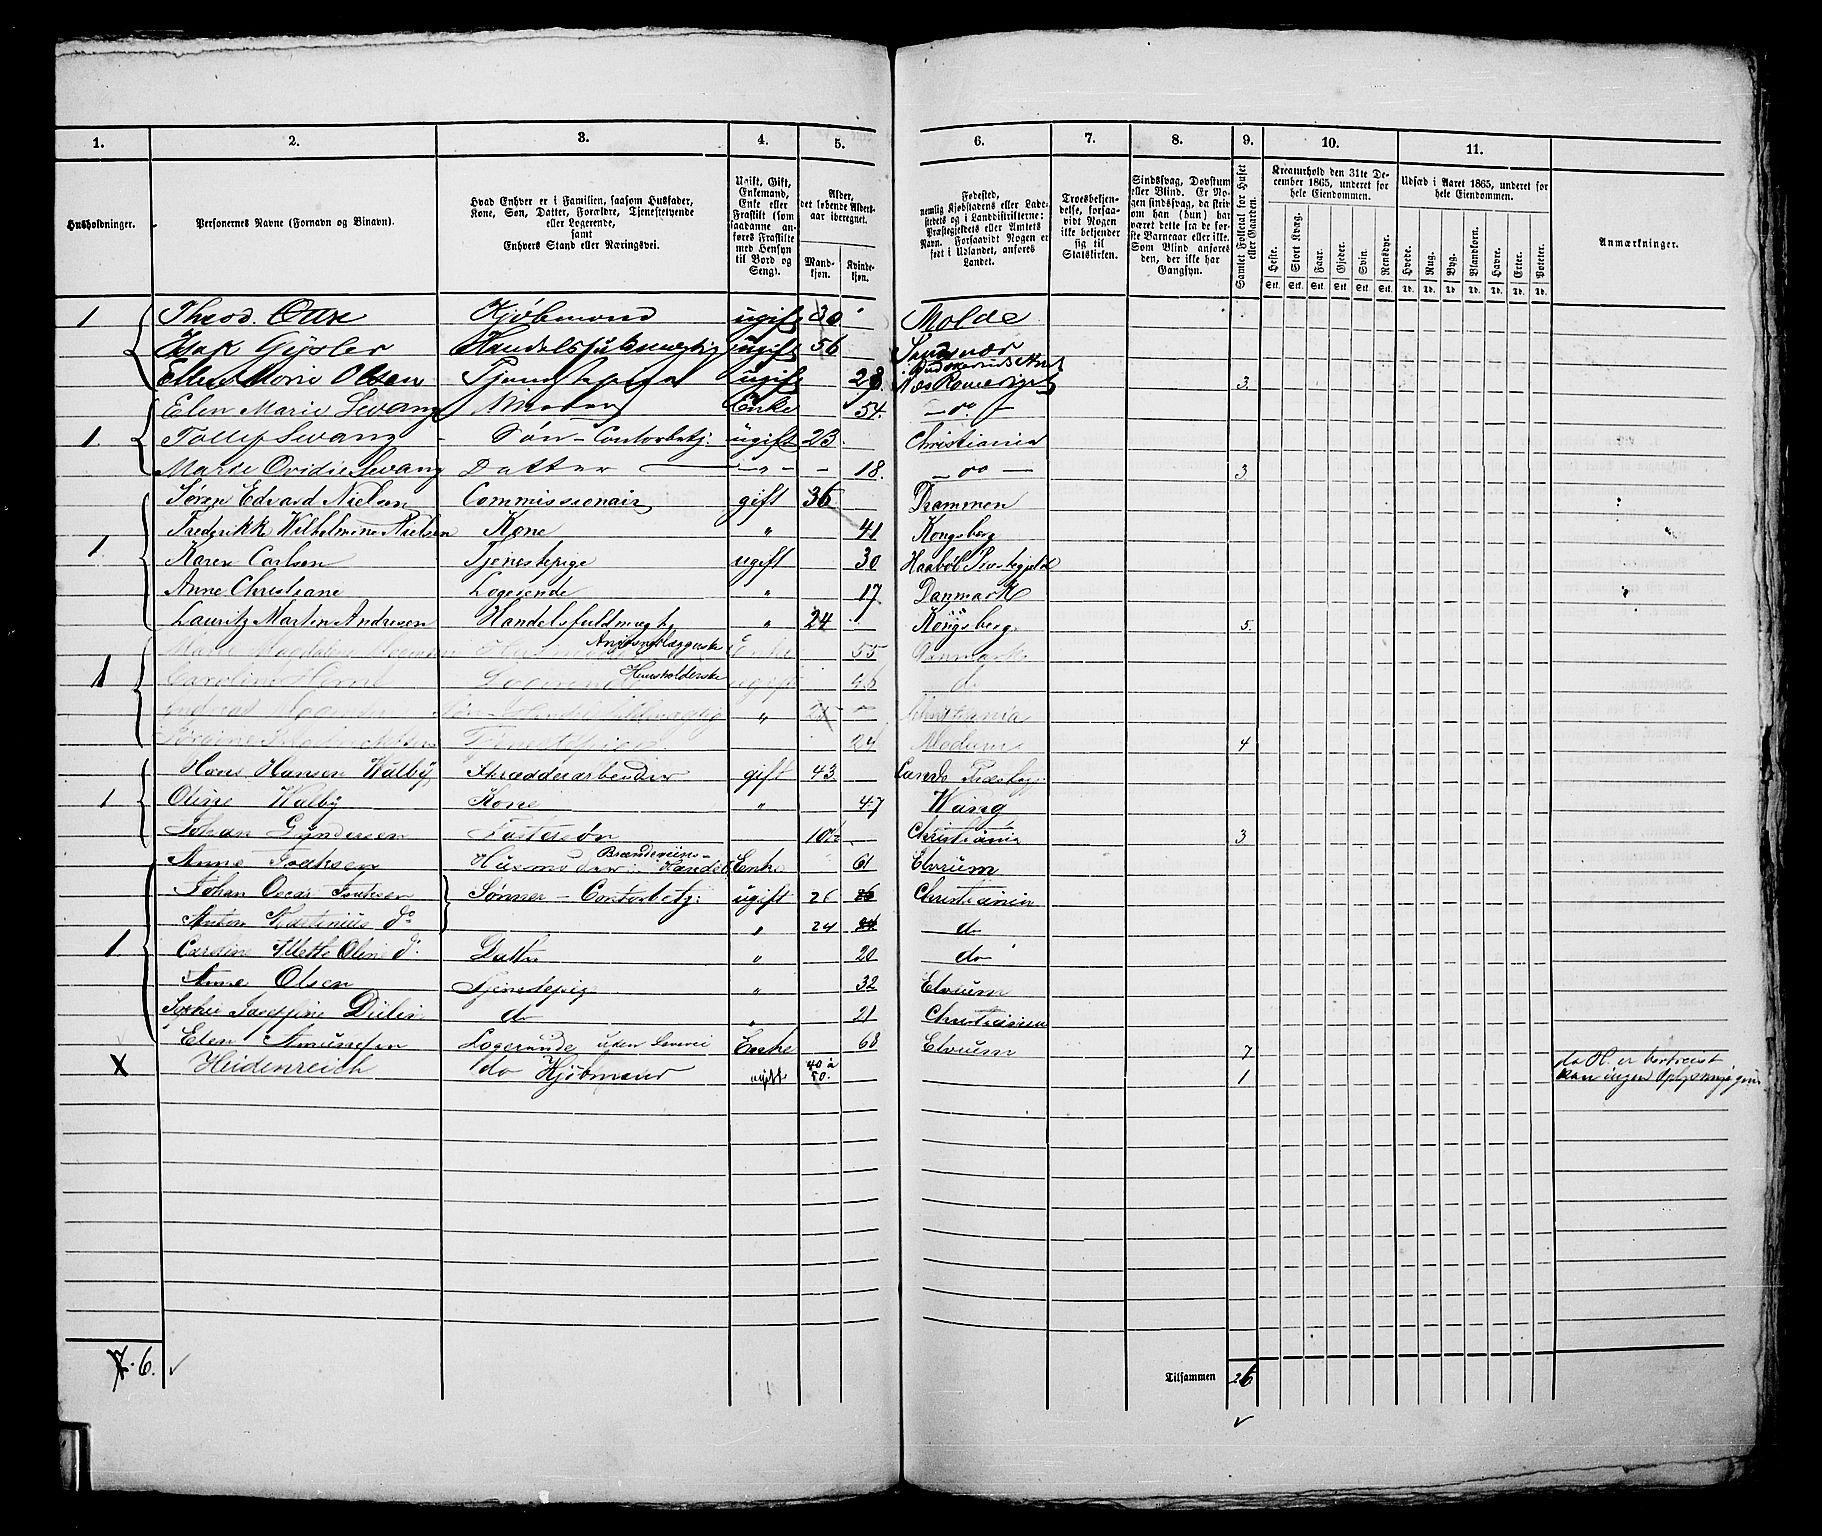 1. 2. 3. 4. 5. 6. 7. 8. 9. 10. 11.
Husholdninger.
Personernes Navne (Fornavn og Binavn).
Hvad Enhver er i Familien, saasom Husfader,
Kone, Søn, Datter, Forældre, Tjenestetyende
eller Logerende,
samt
Enhvers Stand eller Næringsvei.
Ugift, Gift,
Enkemand,
Enke eller
Fraskilt (som
saadanne an-
føres Fraskilte
med Hensyn
til Bord og
Seng).
Alder,
det løbende Alders-
aar iberegnet.
Mand-
kjøn.
Kvinde-
kjøn.
Fødested,
nemlig Kjøbstadens eller Lade-
stedets og i Landdistrikterne:
Præstegjeldets eller Amtets
Navn. Forsaavidt Nogen er
født i Udlandet, anføres
Landet.
Troesbekjen-
delse, forsaa-
vidt Nogen
ikke bekjender
sig til
Statskirken.
Sindssvag, Døvstum
eller Blind. Er No-
gen sindssvag, da skriv
om han (hun) har
været dette fra de før-
ste Barneaar eller ikke.
Som Blind anføres
den, der ikke har
Gangsyn.
Samlet Folketal for Huset
eller Gaarden.
Kreaturhold den 31te De-
cember 1865, underet for
hele Eiendommen.
Heste. Stort Kvæg. Faar. Gjeder. Svin. Rensdyr.
Stk. Stk. Stk. Stk. Stk. Stk.
Udsæd i Aaret 1865, underet for
hele Eiendommen.
Hvede. Rug. Byg. Blandkorn. Havre. Erter. Poteter.
Td. Td. Td. Td. Td. Td. Td.
Anmærkninger.
1 Theod. Kjøbmand ugift 30 Molde
Isak Gjysler Handelsfuldmægtig ugift 56 Sandsvær
Ellen Marie Olsen ugift 28. 3.
Elen Marie Svang Enke 54. — do. —
1. Tollef Svang Søn - Contorbetj. ugift 23. Christiania
Marie Ovidie Svang Datter — — " — - 18. — do — 3
Søren Edvard Nielsen Commissionair gift 36 Drammen
Frederikke Wilhelmine Nielsen Kone " 41 Kongsberg
1. Karen Carlsen Tjenestepige ugift 30 Haabøl Præstegjeld
Anne Christiane Logerende " 17 Danmark
Lauritz Martin Andresen Handelsfuldmægtig " 24 Kongsberg. 5.
Marie Magdalene Enke 55 Danmark
1 Caroline Logerende Huusholderske ugift do
Andreas Søn - Handelsfuldmægtig " Christiania
Tjenestepige 24 Modum 4
Hans Hansen Walby Skrædderarbeider gift 43. Lands Præstegj.
1 Oline Walby Kone " 47 Wang
Johan Gundersen Fostersøn 10½ Christiania 3
Anne Huusmoder Brændeviins-Handel Enke 61 Elverum
Johan Oscar Sønner - Contorbetj: ugift 26 26 Christiania
Anton do " 24 24 do
1 Mette Oline do Datter " 20 do
Anne Olsen Tjenestepige " 32 Elverum
Josefine do " 21 Christiania
Elen Amundsen Logerende uden Enke 68 Elverum 7
X Heidenreich do Kjøbmand ugift 40 à 50. 1 da H. er bortreist
kan ingen Oplysning gives
7. 6. ✓
Tilsammen 26
✓